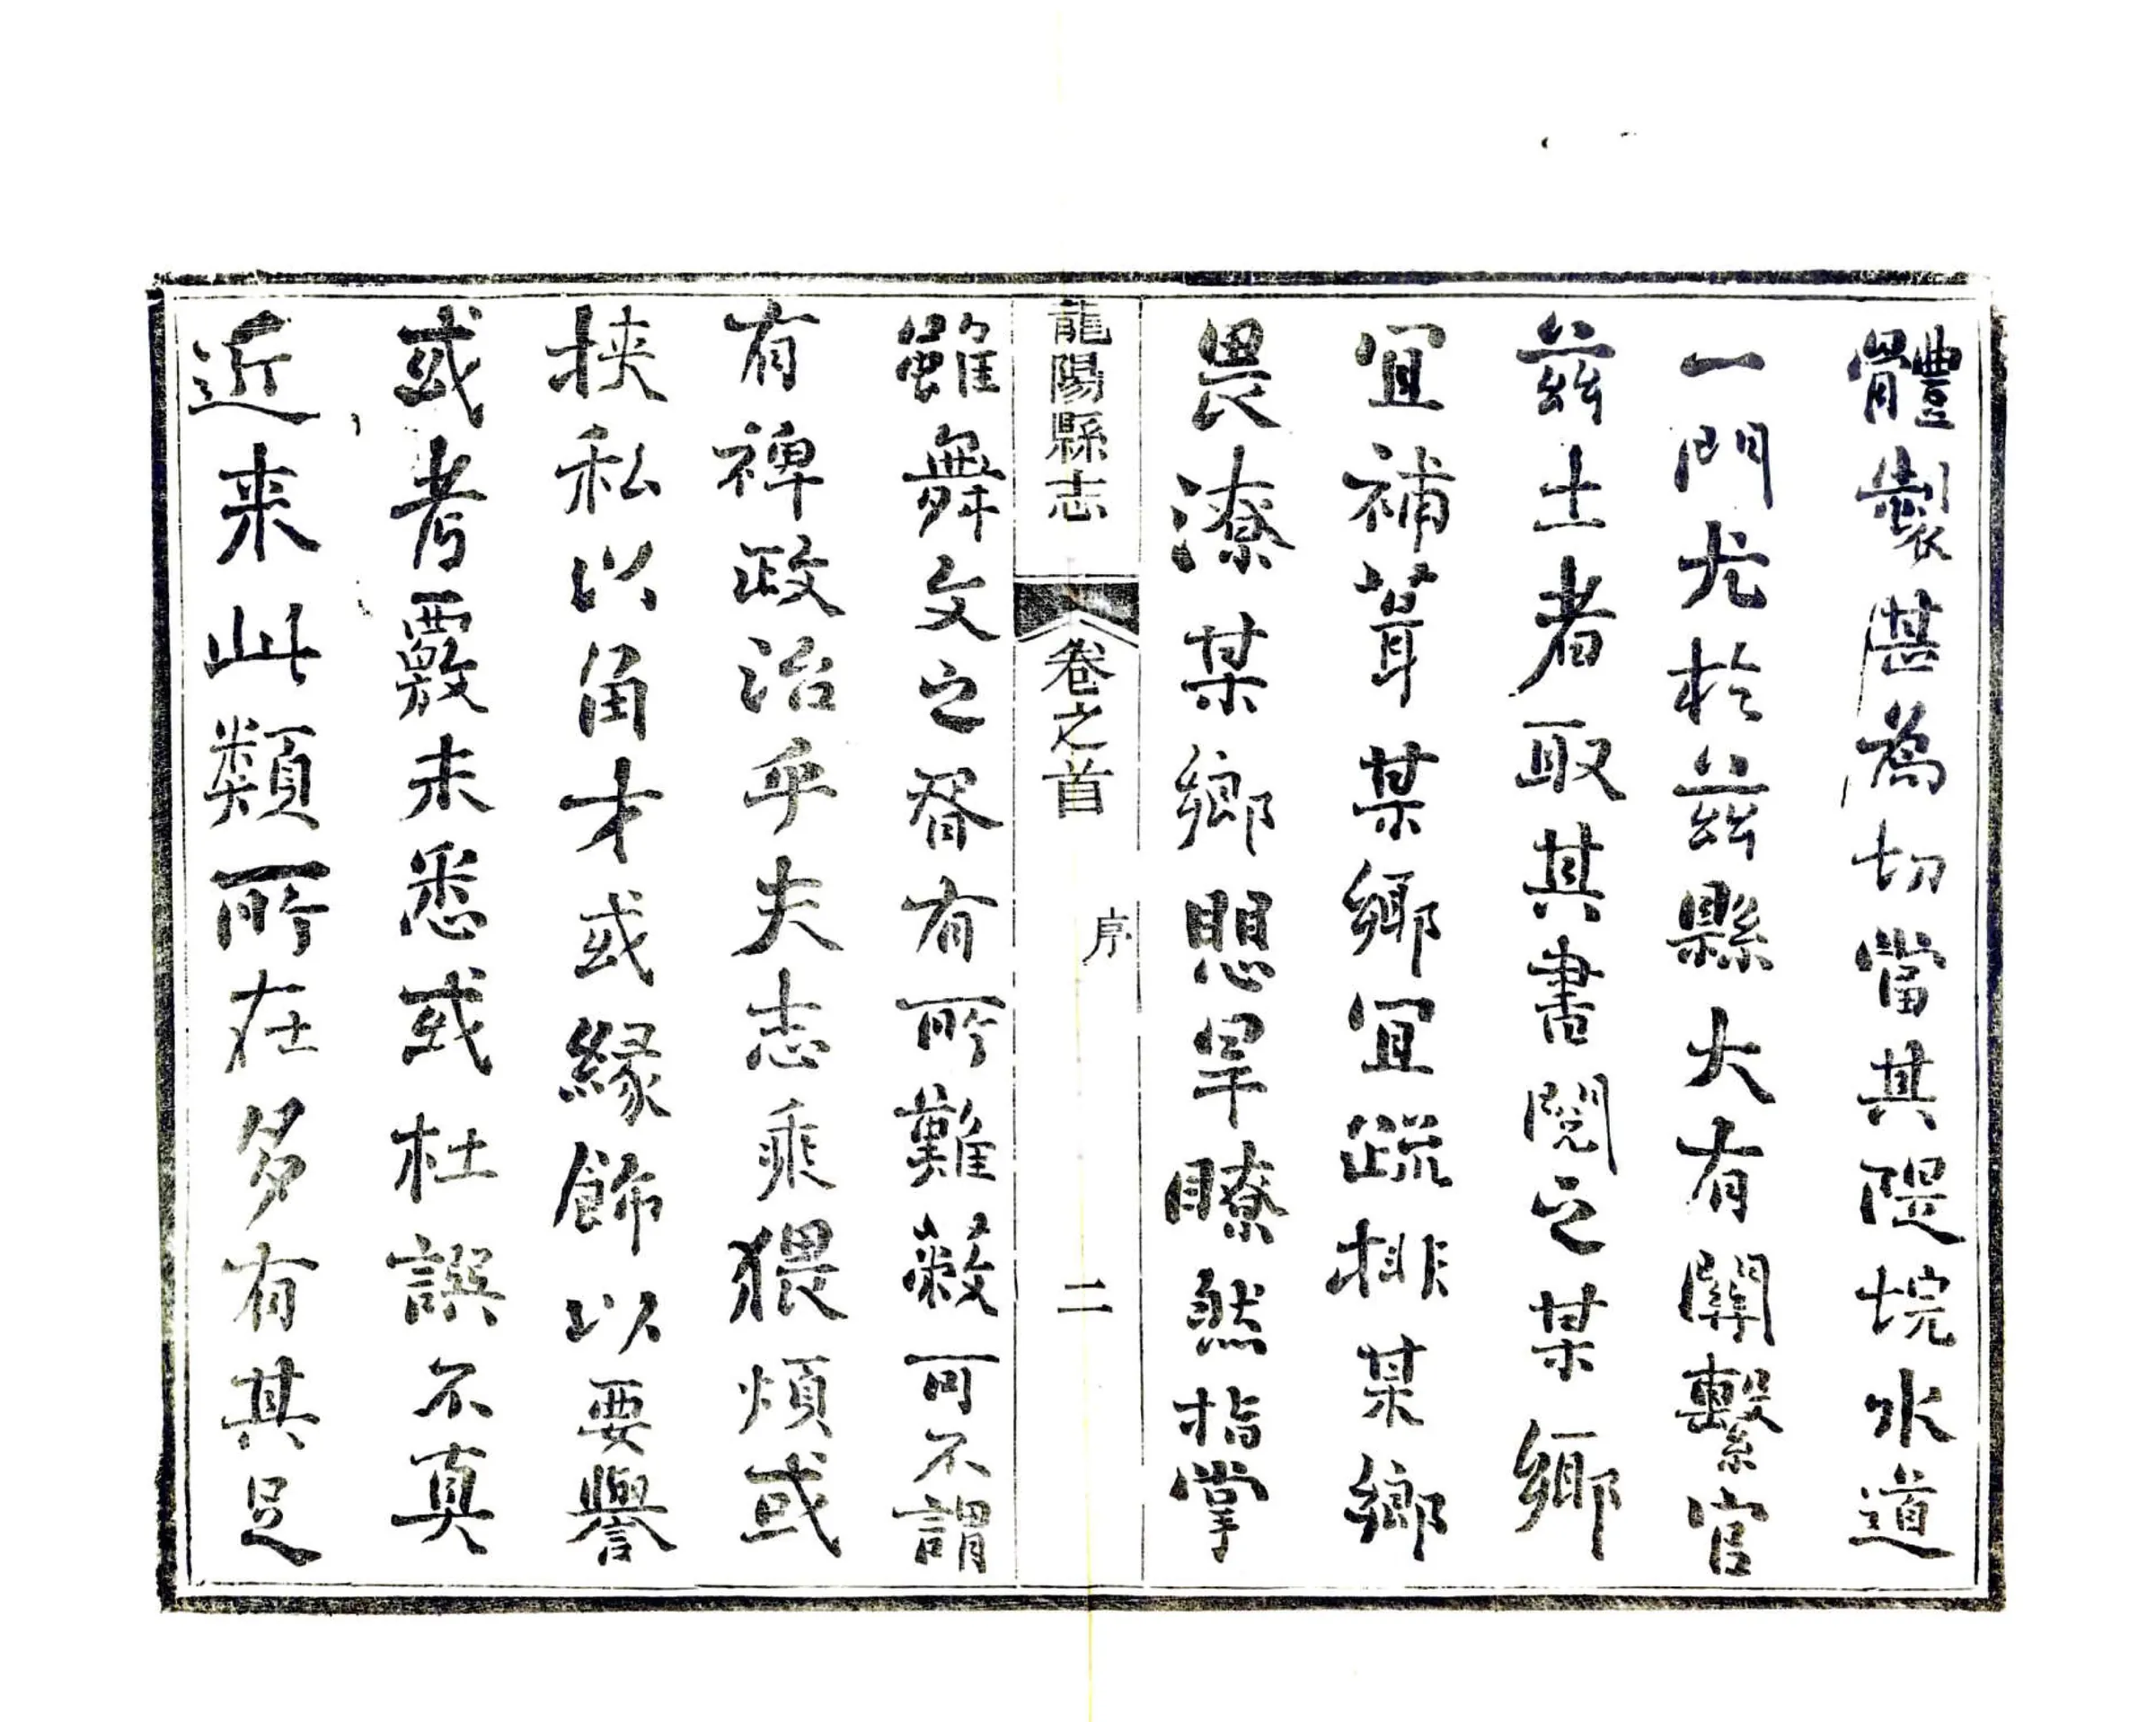 體製甚為切當其隄垸水道
一門尤於兹縣大有關繫官
兹土者取其書閱之某鄉
宜補葺某鄉宜疏排某鄉
畏潦某鄉愳旱瞭然指掌
龍陽縣志 卷之首 序 二
雖舞文之胥有所難蔽可不謂
有裨政治乎夫志乘猥煩或
挾私以角才或緣飾以要譽
或考覈未悉或杜譔不真
近来此類所在多有其足